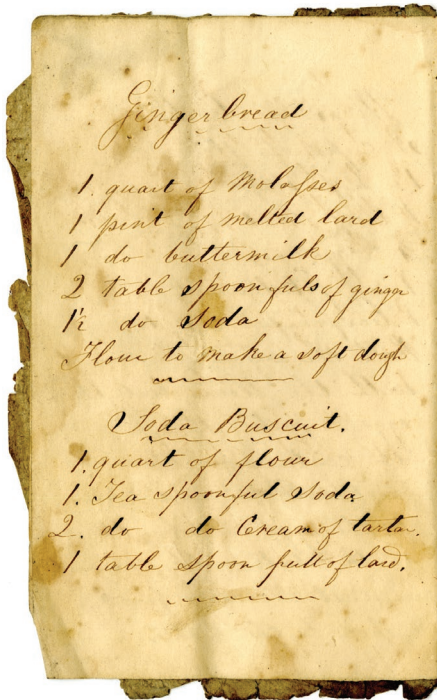 Ginger bread
1. quart of Molasses
1 pint of melted lard
1 do buttermilk
2 table spoon fuls of ginger
1½ do Soda
Flour to make a soft dough
Soda Buscuit.
1. quart of flour
1. Tea spoonful soda
2. do do Cream of tartar.
1 table spoon full of lard.